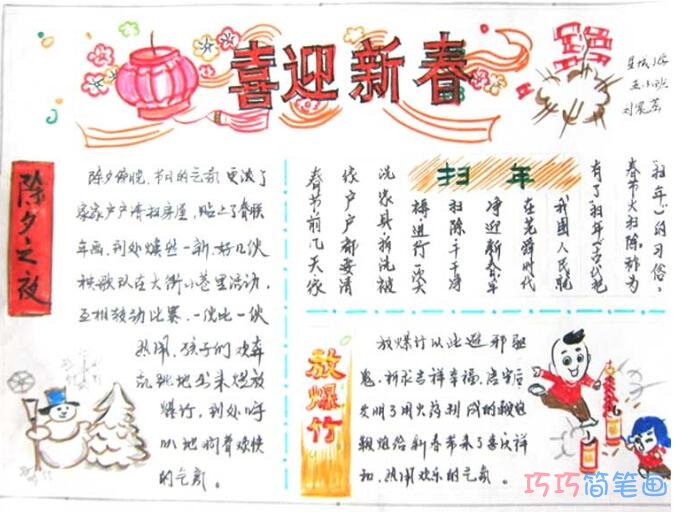 喜迎新春
除夕之夜
除夕傍晚,节日的气氛更浓了
家家户户清扫房屋,贴上了春联
年画,到处焕然一新,好几伙
秧歌队在大街小巷里活动,
互相鼓动比赛,一伙比一伙
热闹,孩子们欢奔
乱跳地出来燃放
爆竹,到处呼
叭地响着欢快
的气氛。
扫年
“扫年”的习俗,
春节大扫除,称为
有了“扫年”古代把
我国人民就
在尧舜时代
净迎新春年
扫除干干净
得进行一次
洗家具拆洗被
家户户都要清
春节前几天家
放爆竹
放爆竹以此避邪驱
鬼,祈求吉祥幸福,唐宋后
发明了用火药制成的鞭炮
鞭炮给新春带来了喜庆祥
和,热闹欢乐的气氛。
巧巧简笔画